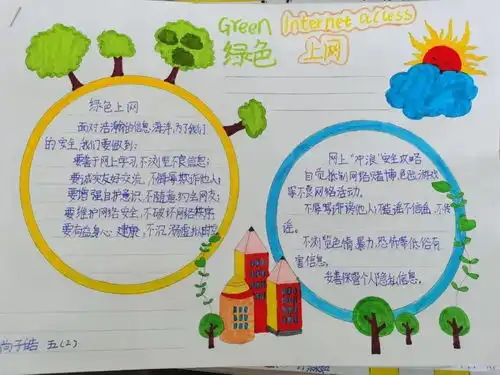 Green Internet access
绿色 上网
绿色上网
面对浩瀚的信息海洋,为了我们
的安全,我们要做到:
要善于网上学习,不浏览不良信息;
要诚实友好交流,不侮辱欺诈他人;
要增强自护意识,不随意约会网友;
要维护网络安全,不破坏网络秩序
要有益身心健康,不沉溺虚拟时空
网上"冲浪"安全攻略
自觉抵制网络赌博色色游戏
等不良网络活动。
不辱骂诽谤他人,不造谣不信谣,不传
谣。
不浏览色情、暴力、恐怖等低俗有
害信息。
妥善保管个人隐私信息。
五(2)